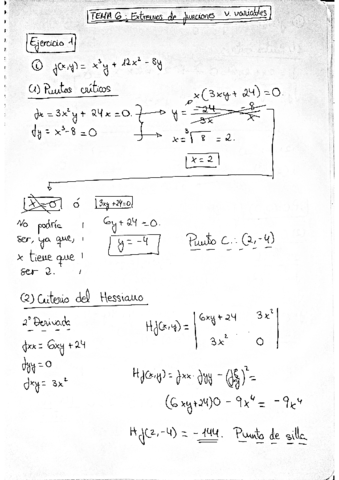 TEMA 6: Extremos de funciones v. variables
Ejercicio 1
c) f(x,y) = x³y + 12x² - 8y
(1) Puntos críticos
x(3xy + 24) = 0
fx = 3x²y + 24x = 0
y = -24/3x = -8/x
fy = x³ - 8 = 0
x = ³√8 = 2.
x = 2
x = 0 ó 3xy + 24 = 0
No podría
ser, ya que,
x tiene que
ser 2.
6y + 24 = 0.
y = -4
Punto C.: (2, -4)
(2) Criterio del Hessiano
2ª Derivada
fxx = 6xy + 24
fyy = 0
fxy = 3x²
Hf(x,y) = | 6xy + 24 3x² |
| 3x² 0 |
Hf(x,y) = fxx · fyy - (fxy)² =
(6xy + 24)0 - 9x⁴ = -9x⁴
Hf(2, -4) = -144. Punto de silla